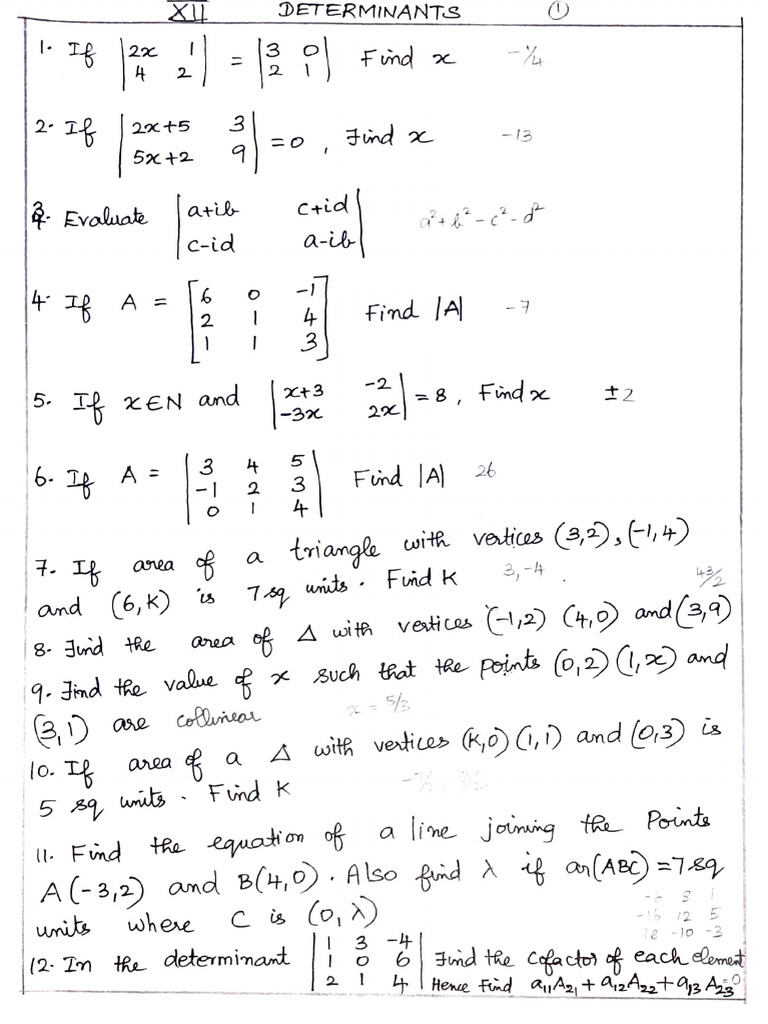 XII DETERMINANTS 1
1. If |2x 1| = |3 0| Find x -1/4
|4 2| |2 1|
2. If |2x+5 3| = 0, Find x -13
|5x+2 9|
3. Evaluate |a+ib c+id| a²+b²-c²-d²
|c-id a-ib|
4. If A = [6 0 -1] Find |A| -7
[2 1 4]
[1 1 3]
5. If x∈N and |x+3 -2| = 8, Find x ±2
|-3x 2x|
6. If A = |3 4 5| Find |A| 26
|-1 2 3|
|0 1 4|
7. If area of a triangle with vertices (3,2), (-1,4)
and (6,K) is 7 sq units. Find K 3,-4 43/2
8. Find the area of Δ with vertices (-1,2) (4,0) and (3,9)
9. Find the value of x such that the points (0,2) (1,x) and
(3,1) are collinear x = 5/3
10. If area of a Δ with vertices (K,0) (1,1) and (0,3) is
5 sq units. Find K
11. Find the equation of a line joining the Points
A(-3,2) and B(4,0). Also find λ if ar(ABC) = 7 sq
units where C is (0,λ)
-6 8 1
-16 12 5
18 -10 -3
12. In the determinant |1 3 -4| Find the Cofactor of each element
|1 0 6|
|2 1 4| Hence Find a₁₁A₂₁ + a₁₂A₂₂ + a₁₃A₂₃ =0